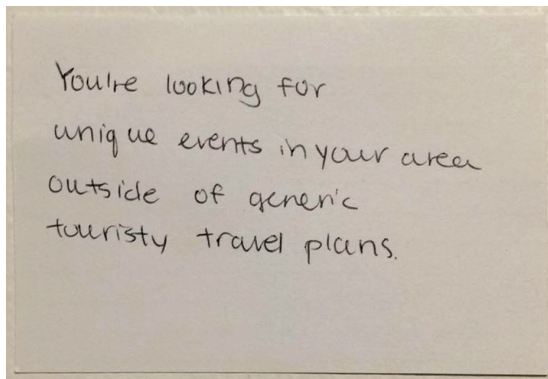 You're looking for
unique events in your area
outside of generic
touristy travel plans.